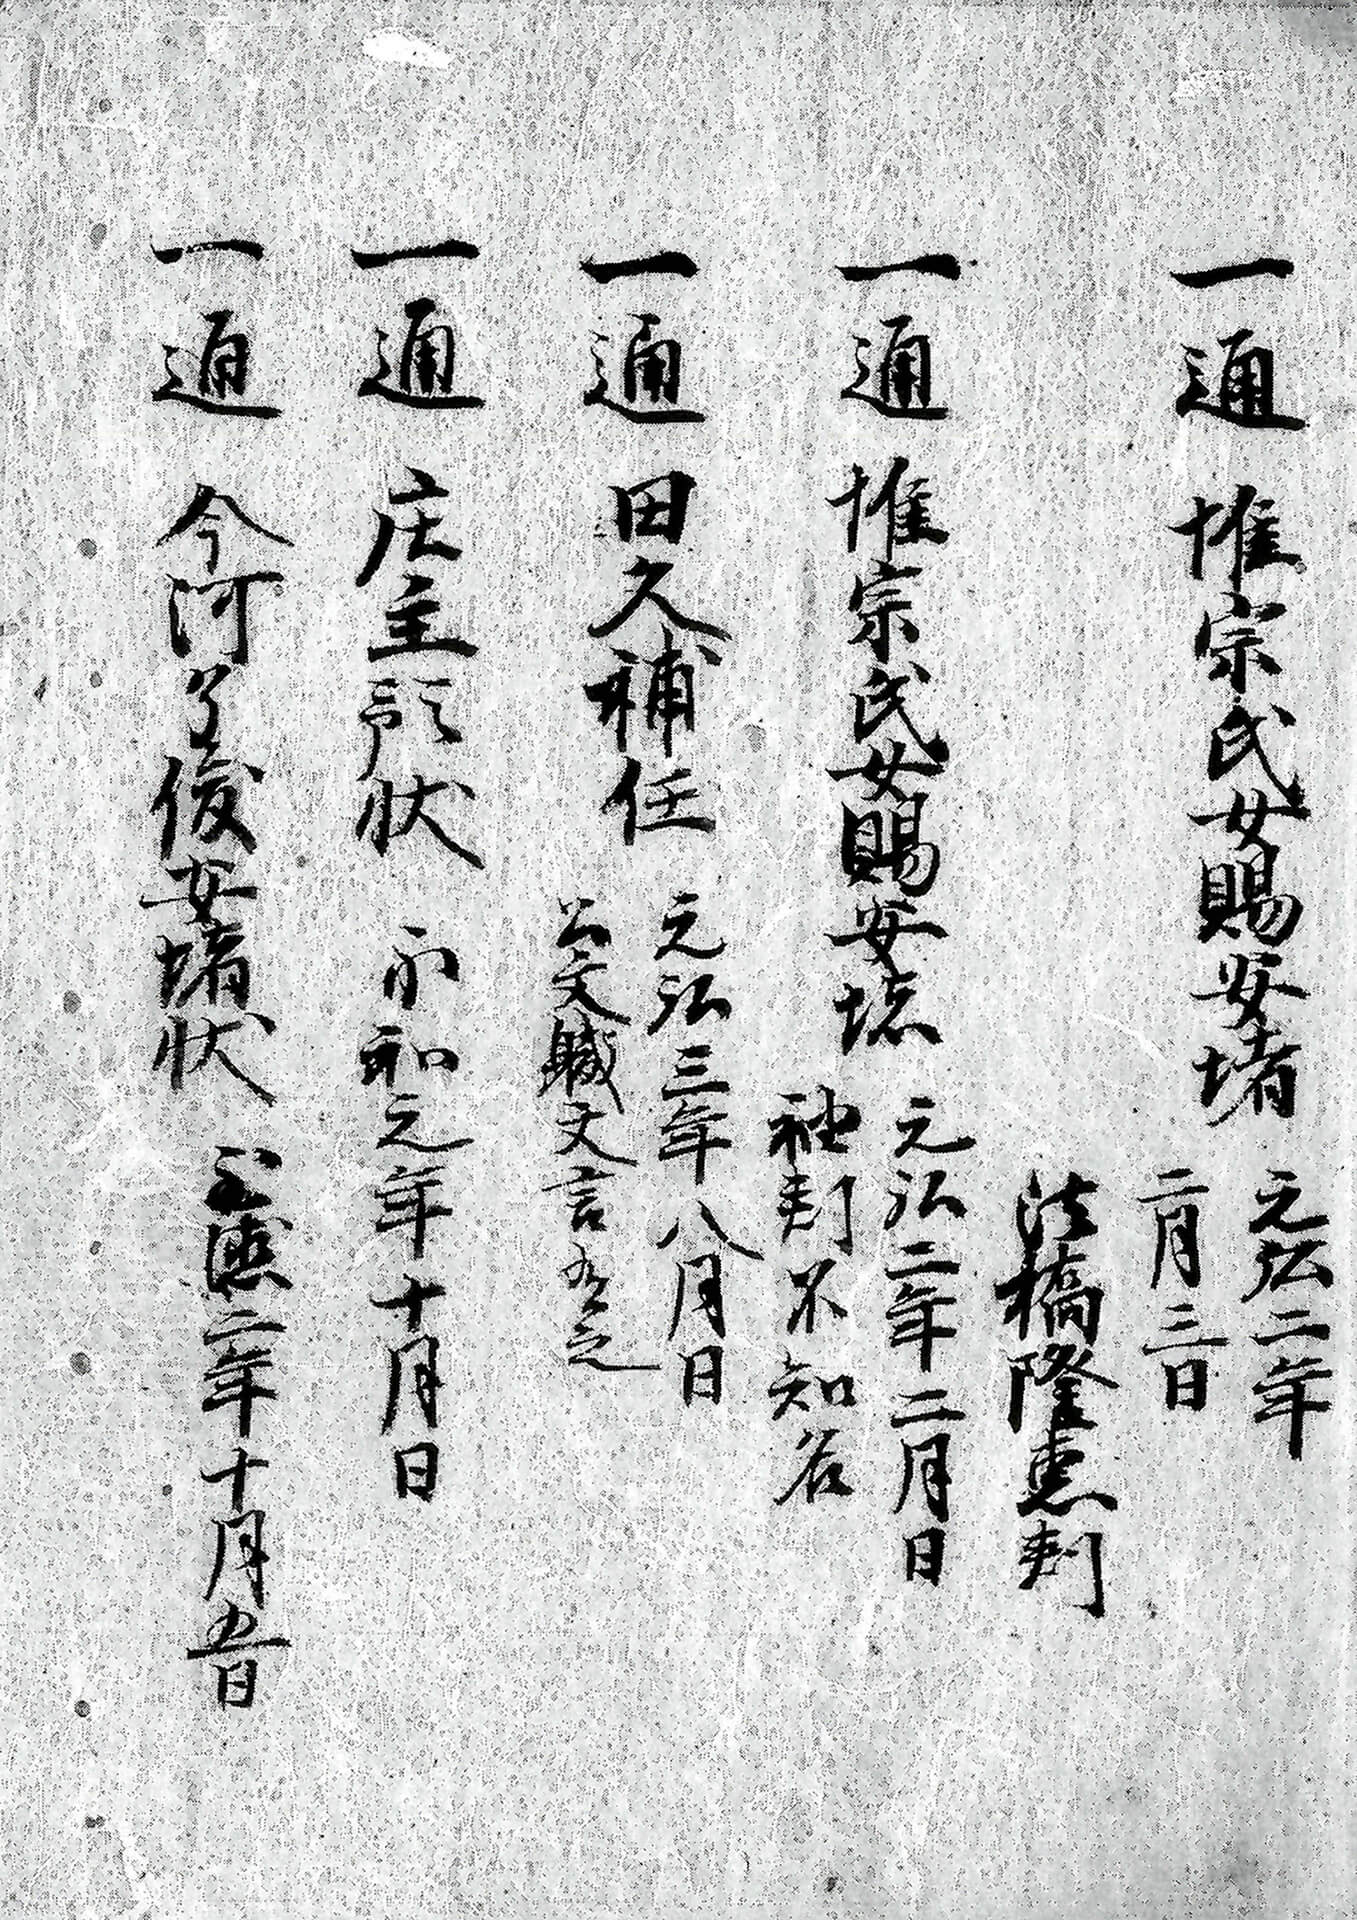 一通 惟宗氏女賜安堵 元弘二年
二月三日
法橋隆恵判
一通 惟宗氏女賜安堵 元弘二年二月日
袖判不知名
一通 田久補任 元弘三年八月日
公文職文言有之
一通 庄主預状 永和元年十月日
一通 今河了俊安堵状 至徳二年十月五日